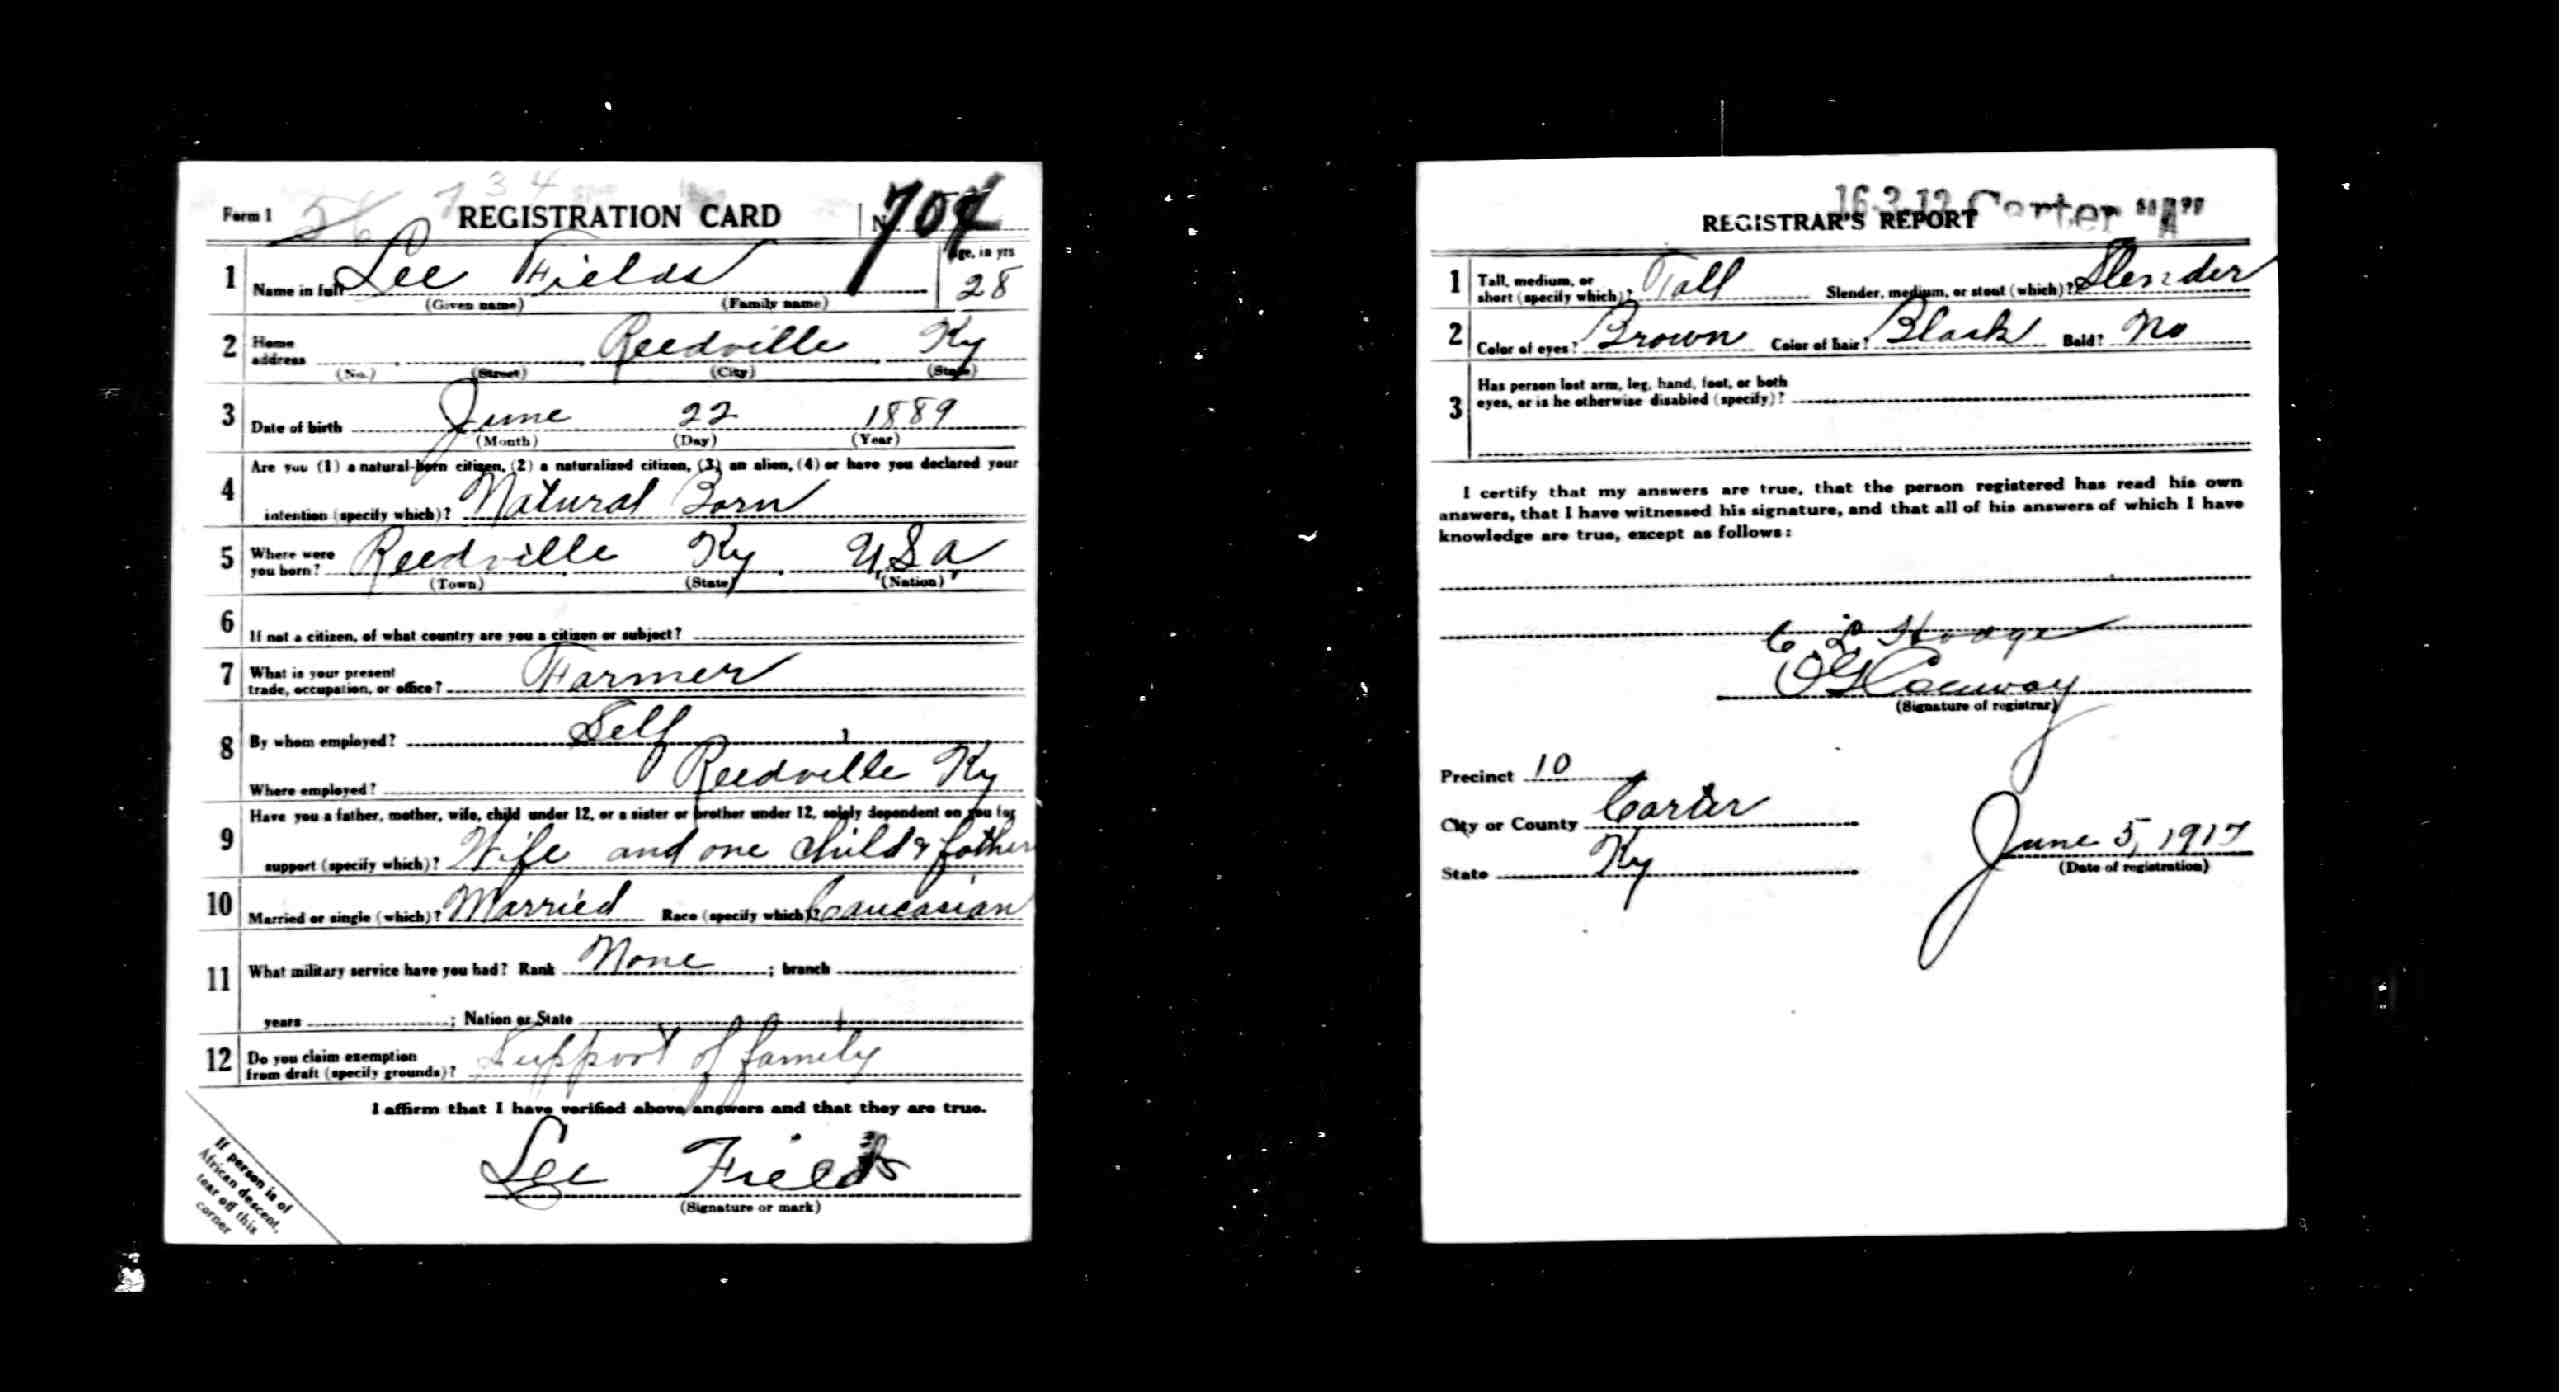 734
Form 1 56 REGISTRATION CARD No. 704
1 Name in full Lee Fields Age, in yrs 28
(Given name) (Family name)
2 Home address Reedville Ky
(No.) (Street) (City) (State)
3 Date of birth June 22 1889
(Month) (Day) (Year)
4 Are you (1) a natural-born citizen, (2) a naturalized citizen, (3) an alien, (4) or have you declared your
intention (specify which)? Natural Born
5 Where were you born? Reedville Ky USA
(Town) (State) (Nation)
6 If not a citizen, of what country are you a citizen or subject?
7 What is your present trade, occupation, or office? Farmer
8 By whom employed? Self
Where employed? Reedville Ky
9 Have you a father, mother, wife, child under 12, or a sister or brother under 12, solely dependent on you for
support (specify which)? Wife and one child & father
10 Married or single (which)? Married Race (specify which)? Caucasian
11 What military service have you had? Rank None ; branch
years ; Nation or State
12 Do you claim exemption from draft (specify grounds)? Support of family
I affirm that I have verified above answers and that they are true.
Lee Fields
(Signature or mark)
If person is of
African descent,
tear off this
corner
16-3-12 Carter "A"
REGISTRAR'S REPORT
1 Tall, medium, or short (specify which)? Tall Slender, medium, or stout (which)? Slender
2 Color of eyes? Brown Color of hair? Black Bald? No
3 Has person lost arm, leg, hand, foot, or both
eyes, or is he otherwise disabled (specify)?
I certify that my answers are true, that the person registered has read his own
answers, that I have witnessed his signature, and that all of his answers of which I have
knowledge are true, except as follows:
C L Hodge
(Signature of registrar)
Precinct 10
City or County Carter
State Ky
June 5, 1917
(Date of registration)